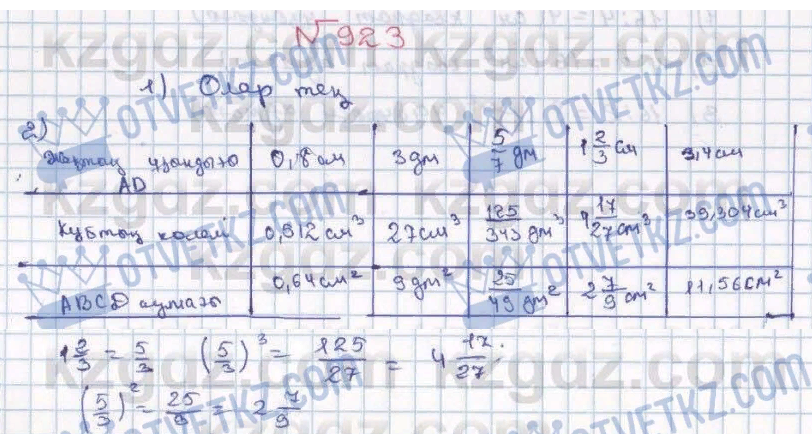 №923
1) Олар тең
2)
Жақтың ұзындығы AD 0,8 см 3 дм 5/7 дм 1 2/3 см 3,4 см
Кубтың көлемі 0,512 см³ 27 см³ 125/343 дм³ 4 17/27 см³ 39,304 см³
ABCD аумағы 0,64 см² 9 дм² 25/49 дм² 2 7/9 см² 11,56 см²
1 2/3 = 5/3 (5/3)³ = 125/27 = 4 17/27.
(5/3)² = 25/9 = 2 7/9
kzgdz.com
OTVETKZ.COM